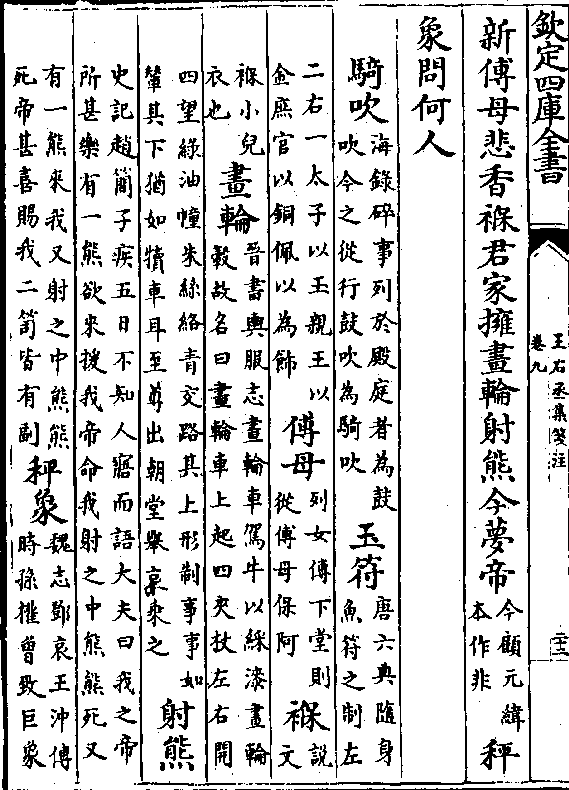 欽定四庫全書
王右丞集箋注
卷九
二十三
新傅母悲香褓君家擁畫輪射熊今夢帝今顧元緯本作非秤
象問何人
騎吹海錄碎事列於殿庭者為鼓吹今之從行鼓吹為騎吹 玉符唐六典隨身魚符之制左
二右一太子以玉親王以金庶官以銅佩以為飾 傅母列女傳下堂則從傅母保阿 褓說文
褓小兒衣也 畫輪晉書輿服志畫輪車駕牛以綵漆畫輪轂故名曰畫輪車上起四夾杖左右開
四望綠油幢朱絲絡青交路其上形制事事如輦其下猶如犢車耳至尊出朝堂舉哀乘之 射熊
史記趙簡子疾五日不知人寤而語大夫曰我之帝所甚樂有一熊欲來援我帝命我射之中熊熊死又
有一熊來我又射之中熊熊死帝甚喜賜我二笥皆有副 秤象魏志鄧哀王沖傳時孫權曾致巨象